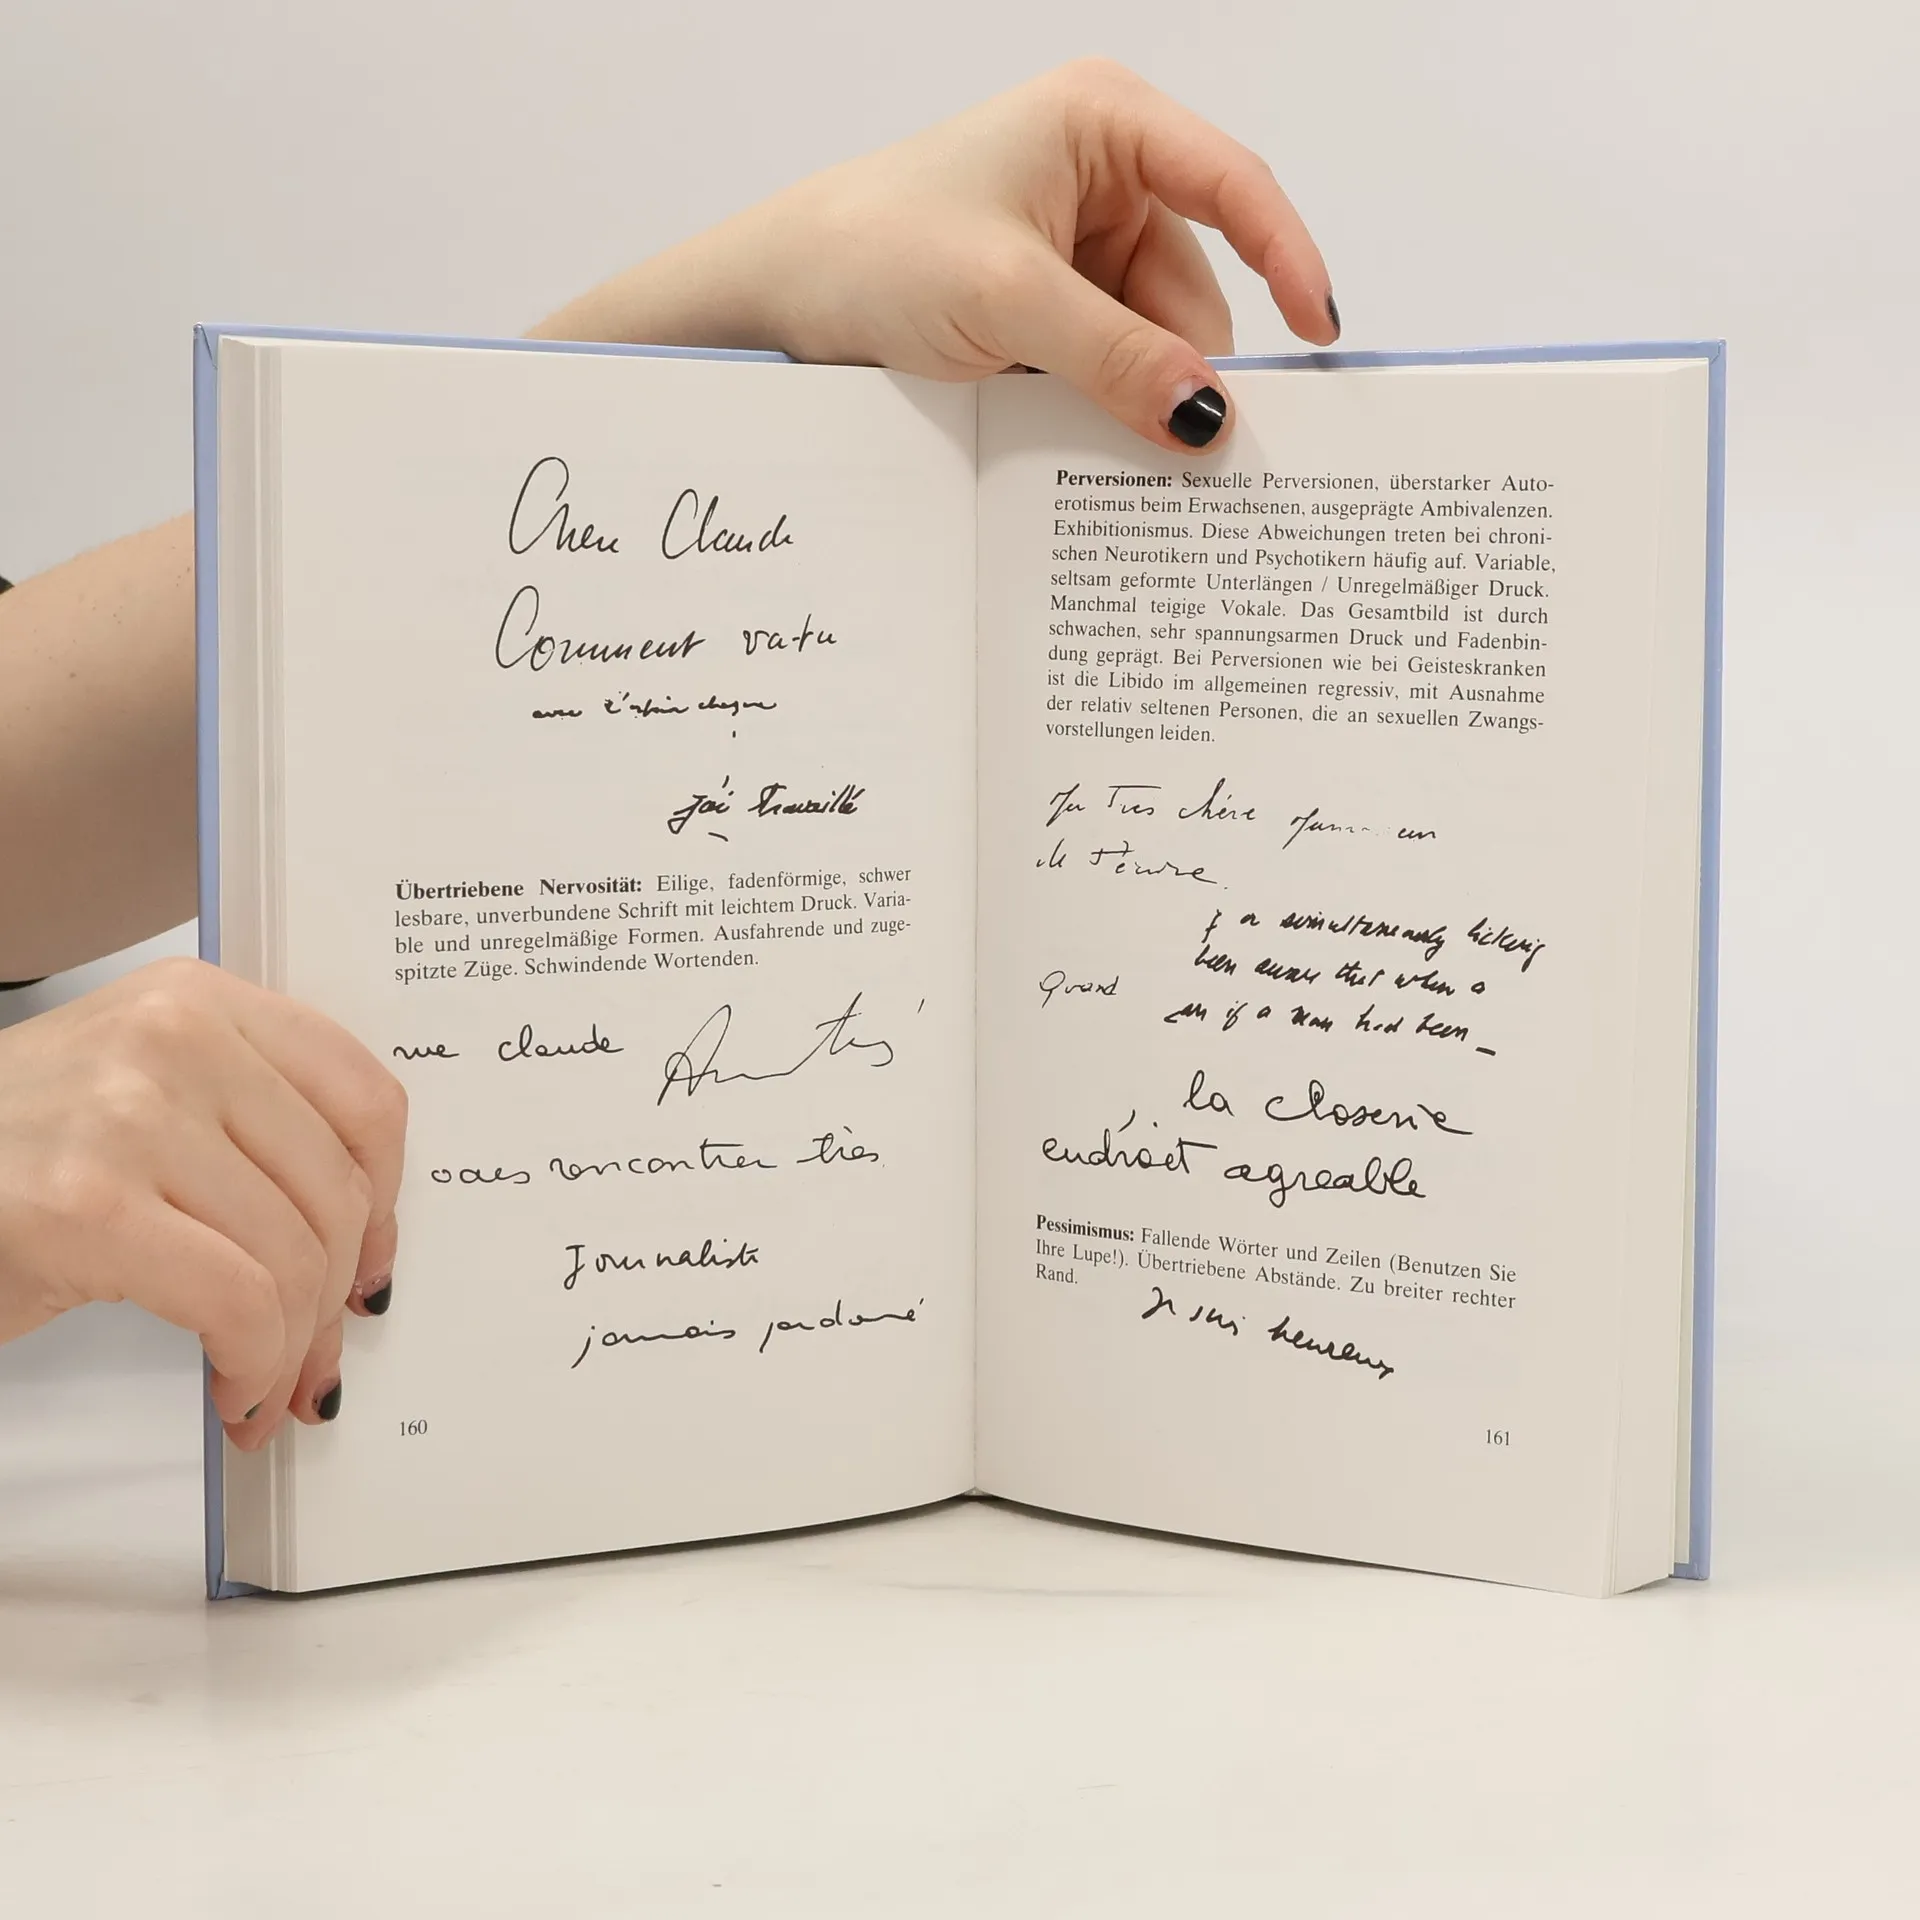 Cher Claude
Comment vas-tu
avec
j'ai travaillé
Übertriebene Nervosität: Eilige, fadenförmige, schwer
lesbare, unverbundene Schrift mit leichtem Druck. Varia-
ble und unregelmäßige Formen. Ausfahrende und zuge-
spitzte Züge. Schwindende Wortenden.
rue claude
rencontrer très
Journaliste
jamais pardonné
160
Perversionen: Sexuelle Perversionen, überstarker Auto-
erotismus beim Erwachsenen, ausgeprägte Ambivalenzen.
Exhibitionismus. Diese Abweichungen treten bei chroni-
schen Neurotikern und Psychotikern häufig auf. Variable,
seltsam geformte Unterlängen / Unregelmäßiger Druck.
Manchmal teigige Vokale. Das Gesamtbild ist durch
schwachen, sehr spannungsarmen Druck und Fadenbin-
dung geprägt. Bei Perversionen wie bei Geisteskranken
ist die Libido im allgemeinen regressiv, mit Ausnahme
der relativ seltenen Personen, die an sexuellen Zwangs-
vorstellungen leiden.
Ma Très chère Maman
a simultaneously
been aware that when a
Quand
if a man had been
la closerie
endroit agreable
Pessimismus: Fallende Wörter und Zeilen (Benutzen Sie
Ihre Lupe!). Übertriebene Abstände. Zu breiter rechter
Rand.
Je suis heureux
161